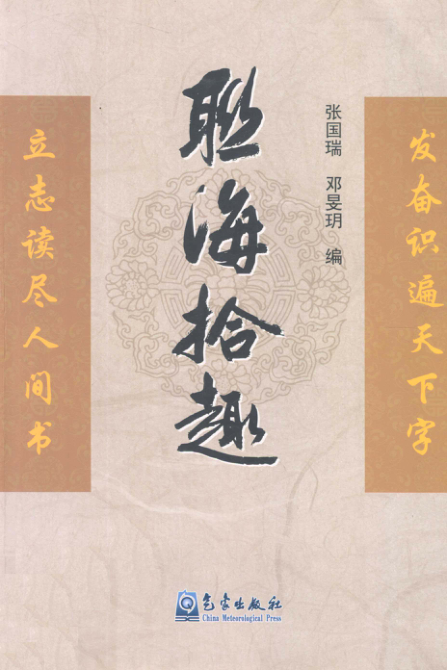 发奋识遍天下字
张国瑞 邓旻玥 编
联海拾趣
立志读尽人间书
气象出版社
China Meteorological Press